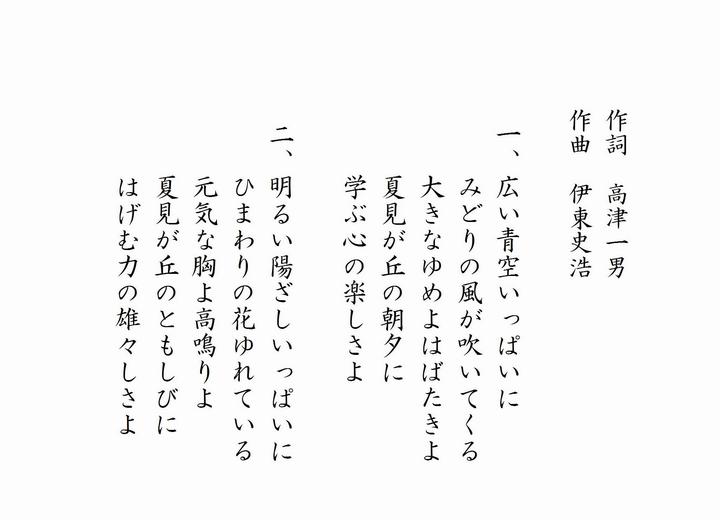 作詞　高津一男
作曲　伊東史浩
一、広い青空いっぱいに
みどりの風が吹いてくる
大きなゆめよはばたきよ
夏見が丘の朝夕に
学ぶ心の楽しさよ
二、明るい陽ざしいっぱいに
ひまわりの花ゆれている
元気な胸よ高鳴りよ
夏見が丘のともしびに
はげむ力の雄々しさよ